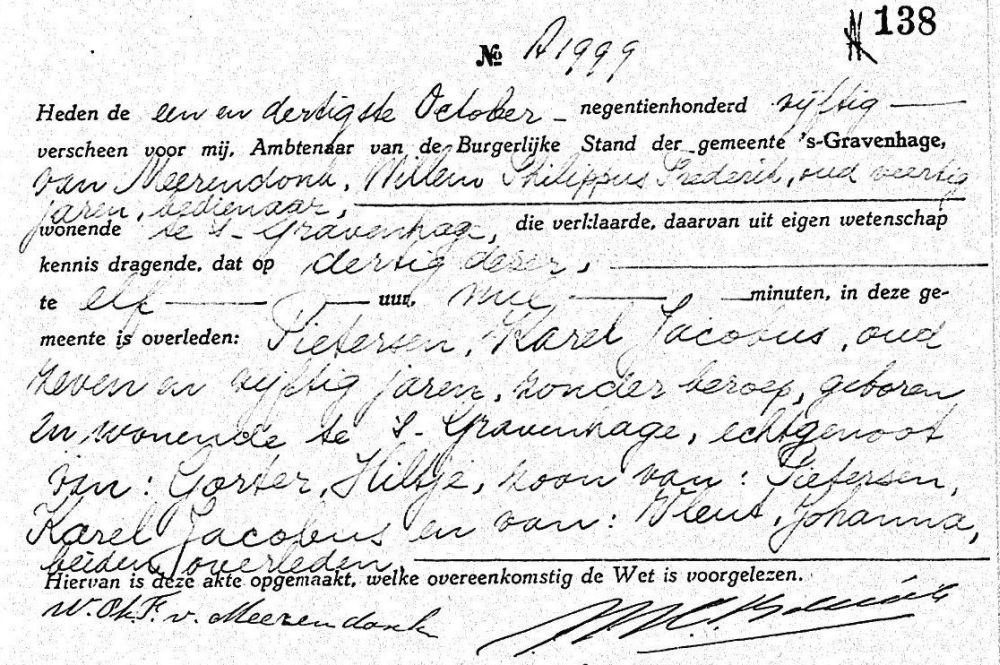 138
№ A1999
Heden de een en dertigste October negentienhonderd vijftig
verscheen voor mij, Ambtenaar van de Burgerlijke Stand der gemeente 's-Gravenhage,
van Meerendonk, Willem Philippus Frederik, oud veertig
jaren, bedienaar,
wonende te 's-Gravenhage, die verklaarde, daarvan uit eigen wetenschap
kennis dragende, dat op dertig dezer,
te elf uur, nul minuten, in deze ge-
meente is overleden: Pietersen, Karel Jacobus, oud
zeven en vijftig jaren, zonder beroep, geboren
en wonende te 's-Gravenhage, echtgenoot
van: Gorter, Hiltje, zoon van: Pietersen,
Karel Jacobus en van: Vleut, Johanna,
beiden overleden,
Hiervan is deze akte opgemaakt, welke overeenkomstig de Wet is voorgelezen.
W. Ph. F. v. Meerendonk